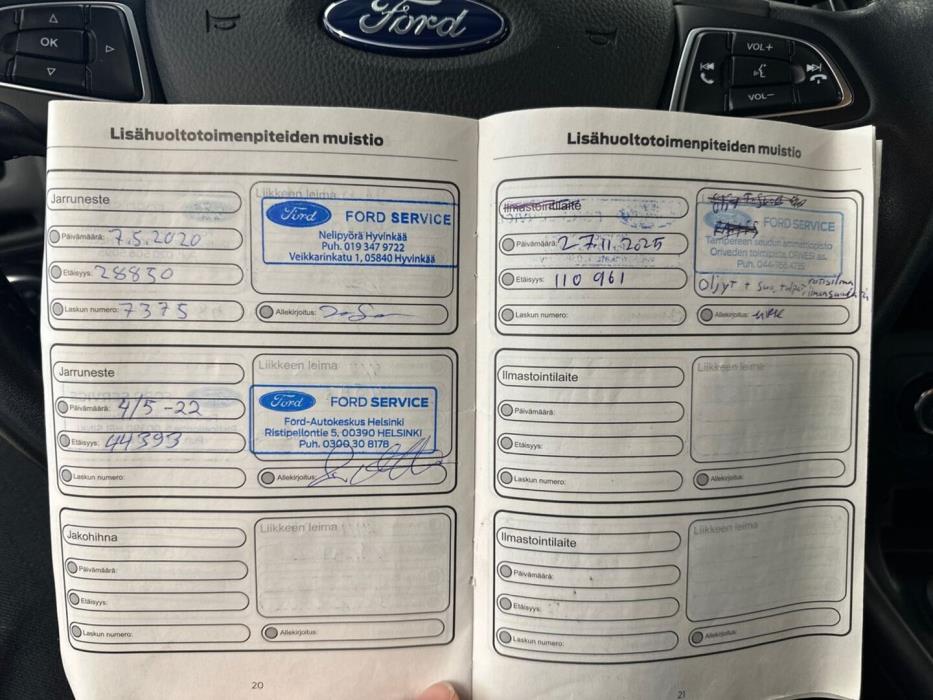 Ford
OK
VOL+
VOL−
Lisähuoltotoimenpiteiden muistio
Jarruneste
Päivämäärä: 7.5.2020
Etäisyys: 28830
Laskun numero: 7375
Liikkeen leima
Ford FORD SERVICE
Nelipyörä Hyvinkää
Puh. 019 347 9722
Veikkarinkatu 1, 05840 Hyvinkää
Allekirjoitus:
Jarruneste
Päivämäärä: 4/5 -22
Etäisyys: 44393
Laskun numero:
Liikkeen leima
Ford FORD SERVICE
Ford-Autokeskus Helsinki
Ristipellontie 5, 00390 HELSINKI
Puh. 0300 30 8178
Allekirjoitus:
Jakohihna
Päivämäärä:
Etäisyys:
Laskun numero:
Liikkeen leima
Allekirjoitus:
20
Lisähuoltotoimenpiteiden muistio
Ilmastointilaite
Päivämäärä: 27.11.2025
Etäisyys: 110 961
Laskun numero:
FORD SERVICE
Tampereen seudun ammattiopisto
Oriveden toimipiste, ORIVESI as.
Öljyt + suo,
Allekirjoitus:
Ilmastointilaite
Päivämäärä:
Etäisyys:
Laskun numero:
Liikkeen leima
Allekirjoitus:
Ilmastointilaite
Päivämäärä:
Etäisyys:
Laskun numero:
Liikkeen leima
Allekirjoitus:
21